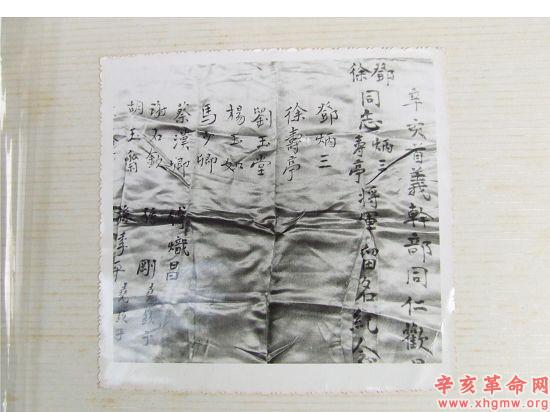 辛亥首義幹部同仁歡
鄧炳三
徐同志壽亭將軍留名紀念
鄧炳三
徐壽亭
劉玉堂
楊玉如
馬少卿
蔡漢卿
謝石欽
胡玉齋
傅熾昌
剛
辛亥革命网
www.xhgmw.org